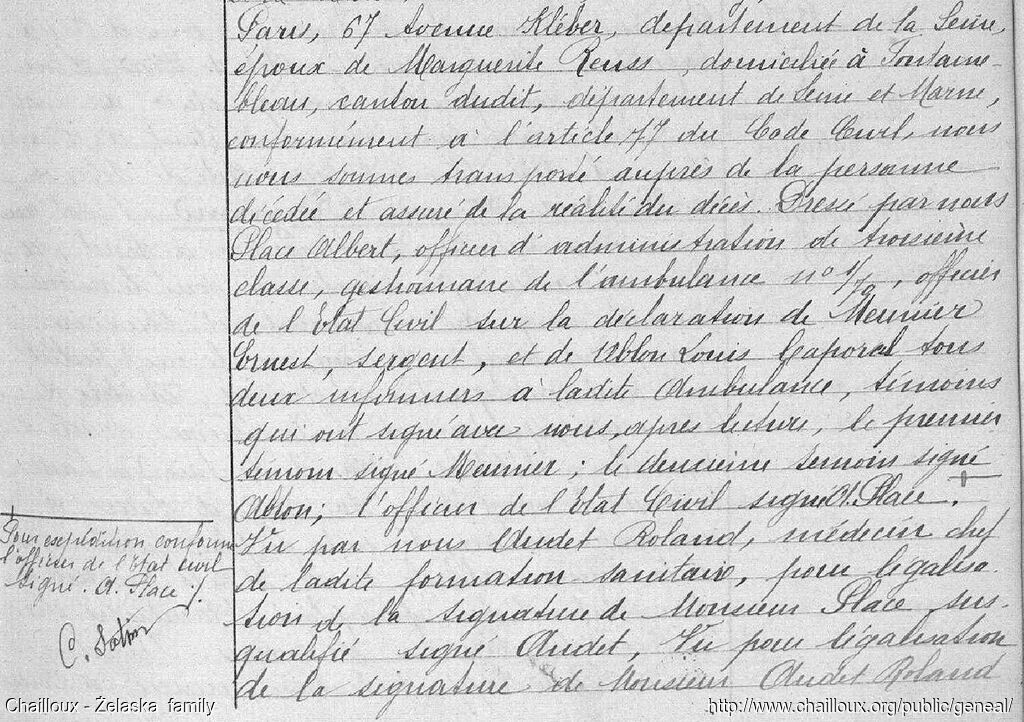 Paris, 67 Avenue Kléber, département de la Seine,
époux de Marguerite Reuss, domiciliée à Fontaine-
bleau, canton dudit, département de Seine et Marne,
conformément à l'article 77 du Code Civil, nous
nous sommes transporté auprès de la personne
décédée et assuré de la réalité du décès. Dressé par nous
Place Albert, officier d'administration de troisième
classe, gestionnaire de l'ambulance n° 1/72, officier
de l'Etat Civil sur la déclaration de Meunier
Ernest, sergent, et de Ablon Louis Caporal tous
deux infirmiers à ladite Ambulance, témoins
qui ont signé avec nous, après lecture, le premier
témoin signé Meunier; le deuxième témoin signé
Ablon; l'officier de l'Etat Civil signé A. Place.
Vu par nous Audet Roland, médecin chef
de ladite formation sanitaire, pour légalisa-
tion de la signature de Monsieur Place sus-
qualifié signé Audet, Vu pour légalisation
de la signature de Monsieur Audet Roland
Pour expédition conforme
l'officier de l'Etat Civil
signé. A. Place ./.
Chailloux - Żelaska family
http://www.chailloux.org/public/geneal/